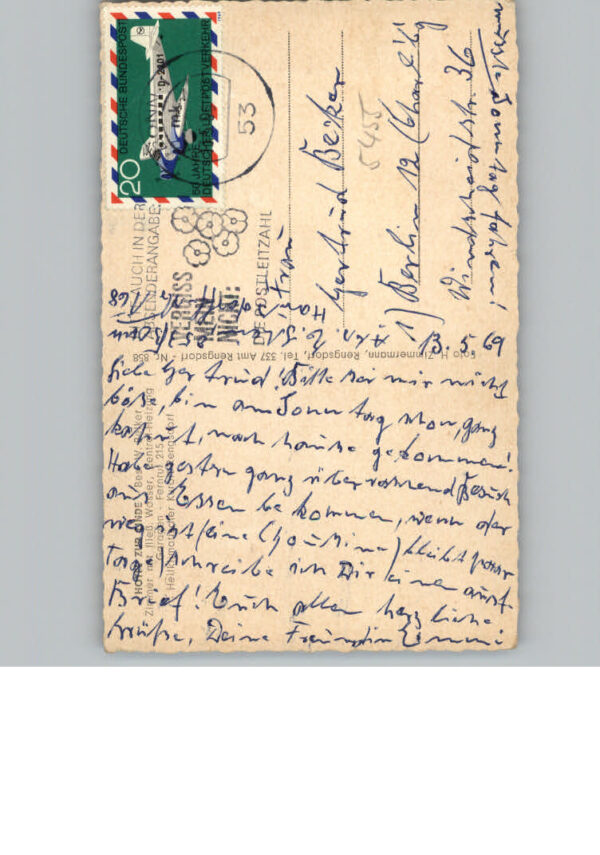 DEUTSCHE BUNDESPOST
20
50 JAHRE
DEUTSCHER LUFTPOSTVERKEHR
D-2101
53
AUCH IN DER
ABSENDERANGABE:
VERGISS
MEIN
NICHT:
DIE POSTLEITZAHL
5455
Frau
Gertrud Becker
1) Berlin 12 (Charl'bg
Windscheidstr. 36
Foto H. Zimmermann, Rengsdorf, Tel. 337 Amt Rengsdorf - Nr. 858
HOTEL ZUR LINDE
Zimmer mit fließ. Wasser, Zentral-Heizung
Garagen - Fernruf 215
Heilklimatischer Kurort Rengsdorf
13.5.69
Liebe Gertrud! Bitte sei mir nicht
böse, bin am Sonntag schon, ganz
kaputt, nach hause gekommen!
Hab gestern ganz überraschend Besuch
aus Essen bekommen, wenn der
weg ist (eine Cousine) bleibt paar
Tage) schreibe ich Dir einen ausf.
Brief! Euch allen herzliche
Grüße, Deine Freundin Emmi